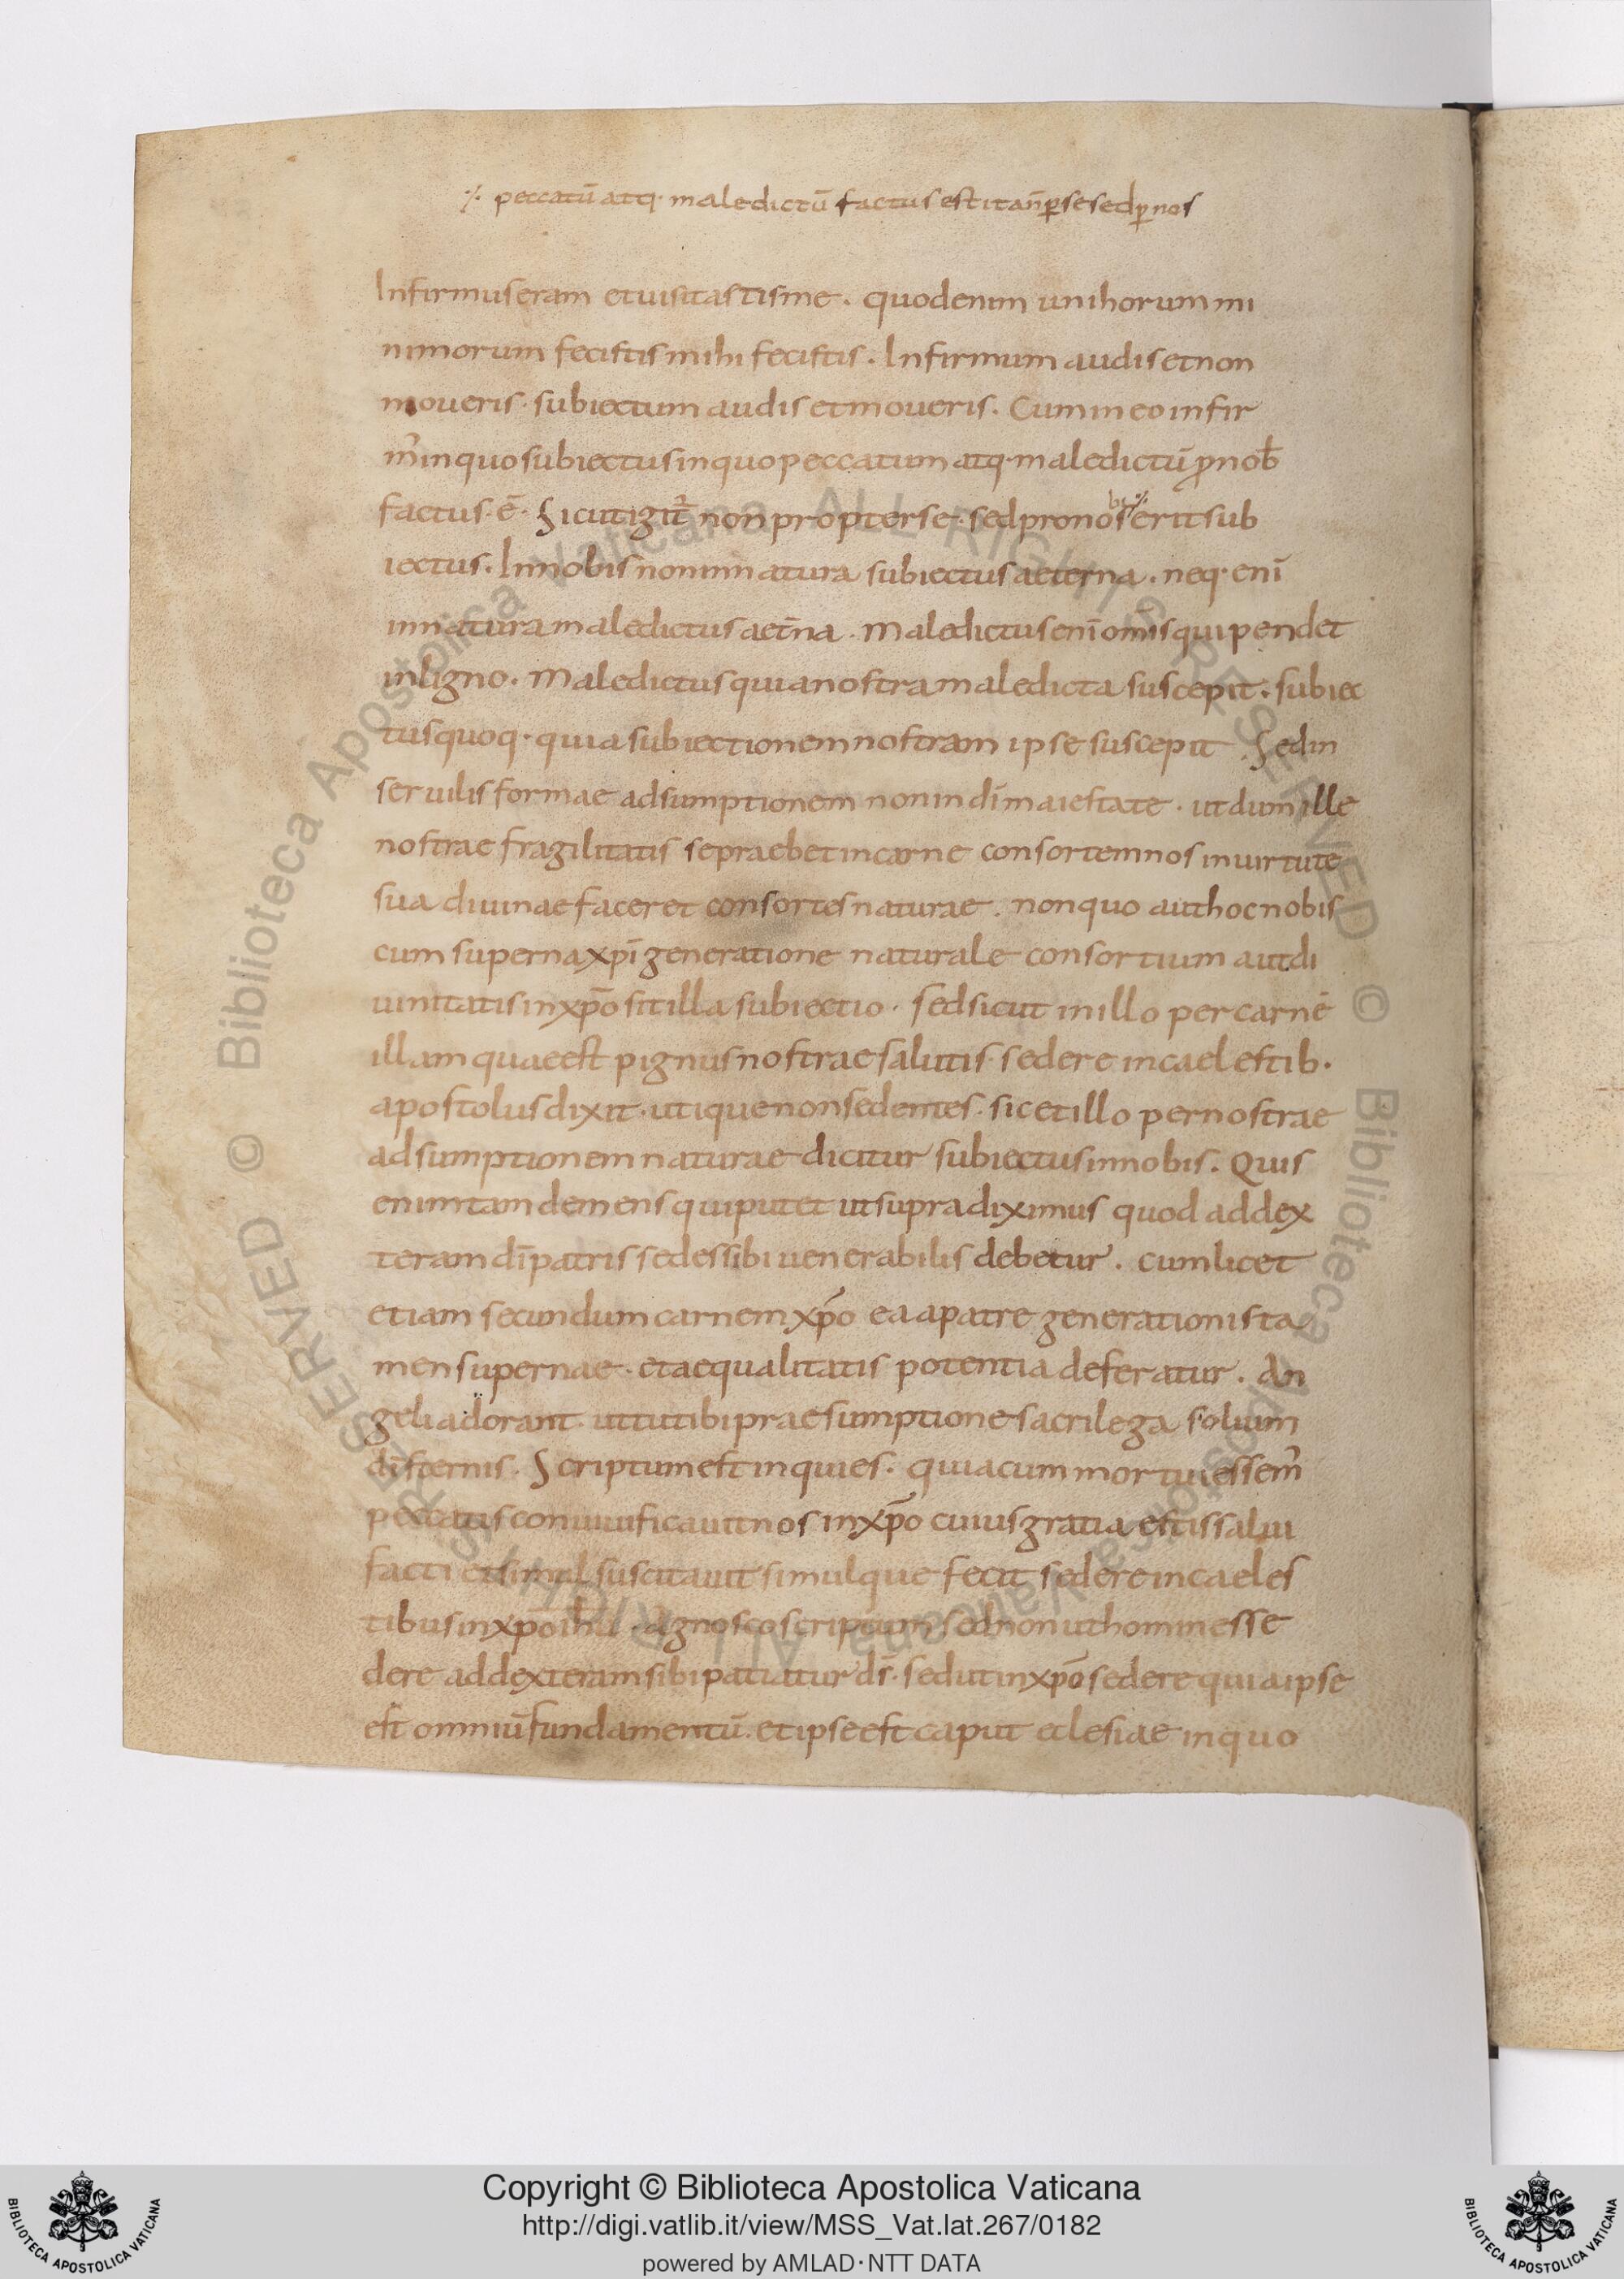 ⁒ peccatū atq· maledictū factus est ita n̄ p̱ se sed p̱ nos
Infirmus eram et uisitastis me. quod enim uni horum mi
nimorum fecistis mihi fecistis. Infirmum audis et non
moueris· subiectum audis et moueris. Cum in eo infir
m' in quo subiectus in quo peccatum atq· maledictū ꝓ nob̄
factus· ē· Sicut igit̄ non propter se· sed pro nos bi ⁒ erit sub
iectus. In nobis non in natura subiectus aeterna. neq· enī
in natura maledictus aet̄na. Maledictus enī om̄is qui pendet
in ligno. Maledictus quia nostra maledicta suscepit. subiec
tus quoq· quia subiectionem nostram ipse suscepit. Sed in
seruilis formae adsumptionem non in dī maiestate. ut dum ille
nostrae fragilitatis se praebet in carne consortem nos in uirtute
sua diuinae faceret consortes naturae. non quo aut hoc nobis
cum superna xp̄i generatione naturale consortium aut di
uinitatis in xp̄o sit illa subiectio. sed sicut in illo per carnē
illam quae est pignus nostrae salutis· sedere in caelestib·
apostolus dixit· utique non sedentes· sic et illo per nostrae
adsumptionem naturae dicitur subiectus in nobis. Quis
enim tam demens qui putet ut supra diximus quod ad dex
teram dī patris sedes sibi uenerabilis debetur. cum licet
etiam secundum carnem xp̄o ea a patre generationis ta
men supernae· et aequalitatis potentia deferatur. An
geli adorant· ut tu tibi praesumptione sacrilega solium
dī sternis. Scriptum est inquies. quia cum mortui essem'
peccatis conuiuificauit nos in xp̄o cuius gratia estis salui
facti et simul suscitauit simulque fecit sedere in caeles
tibus in xp̄o ihū. agnosco scriptum sed non ut homines se
dere ad dexteram sibi patiatur ds̄· sed ut in xp̄o sedere quia ipse
est omniū fundamentū. et ipse est caput eclesiae in quo
Copyright © Biblioteca Apostolica Vaticana
http://digi.vatlib.it/view/MSS_Vat.lat.267/0182
powered by AMLAD·NTT DATA
BIBLIOTECA APOSTOLICA VATICANA
BIBLIOTECA APOSTOLICA VATICANA